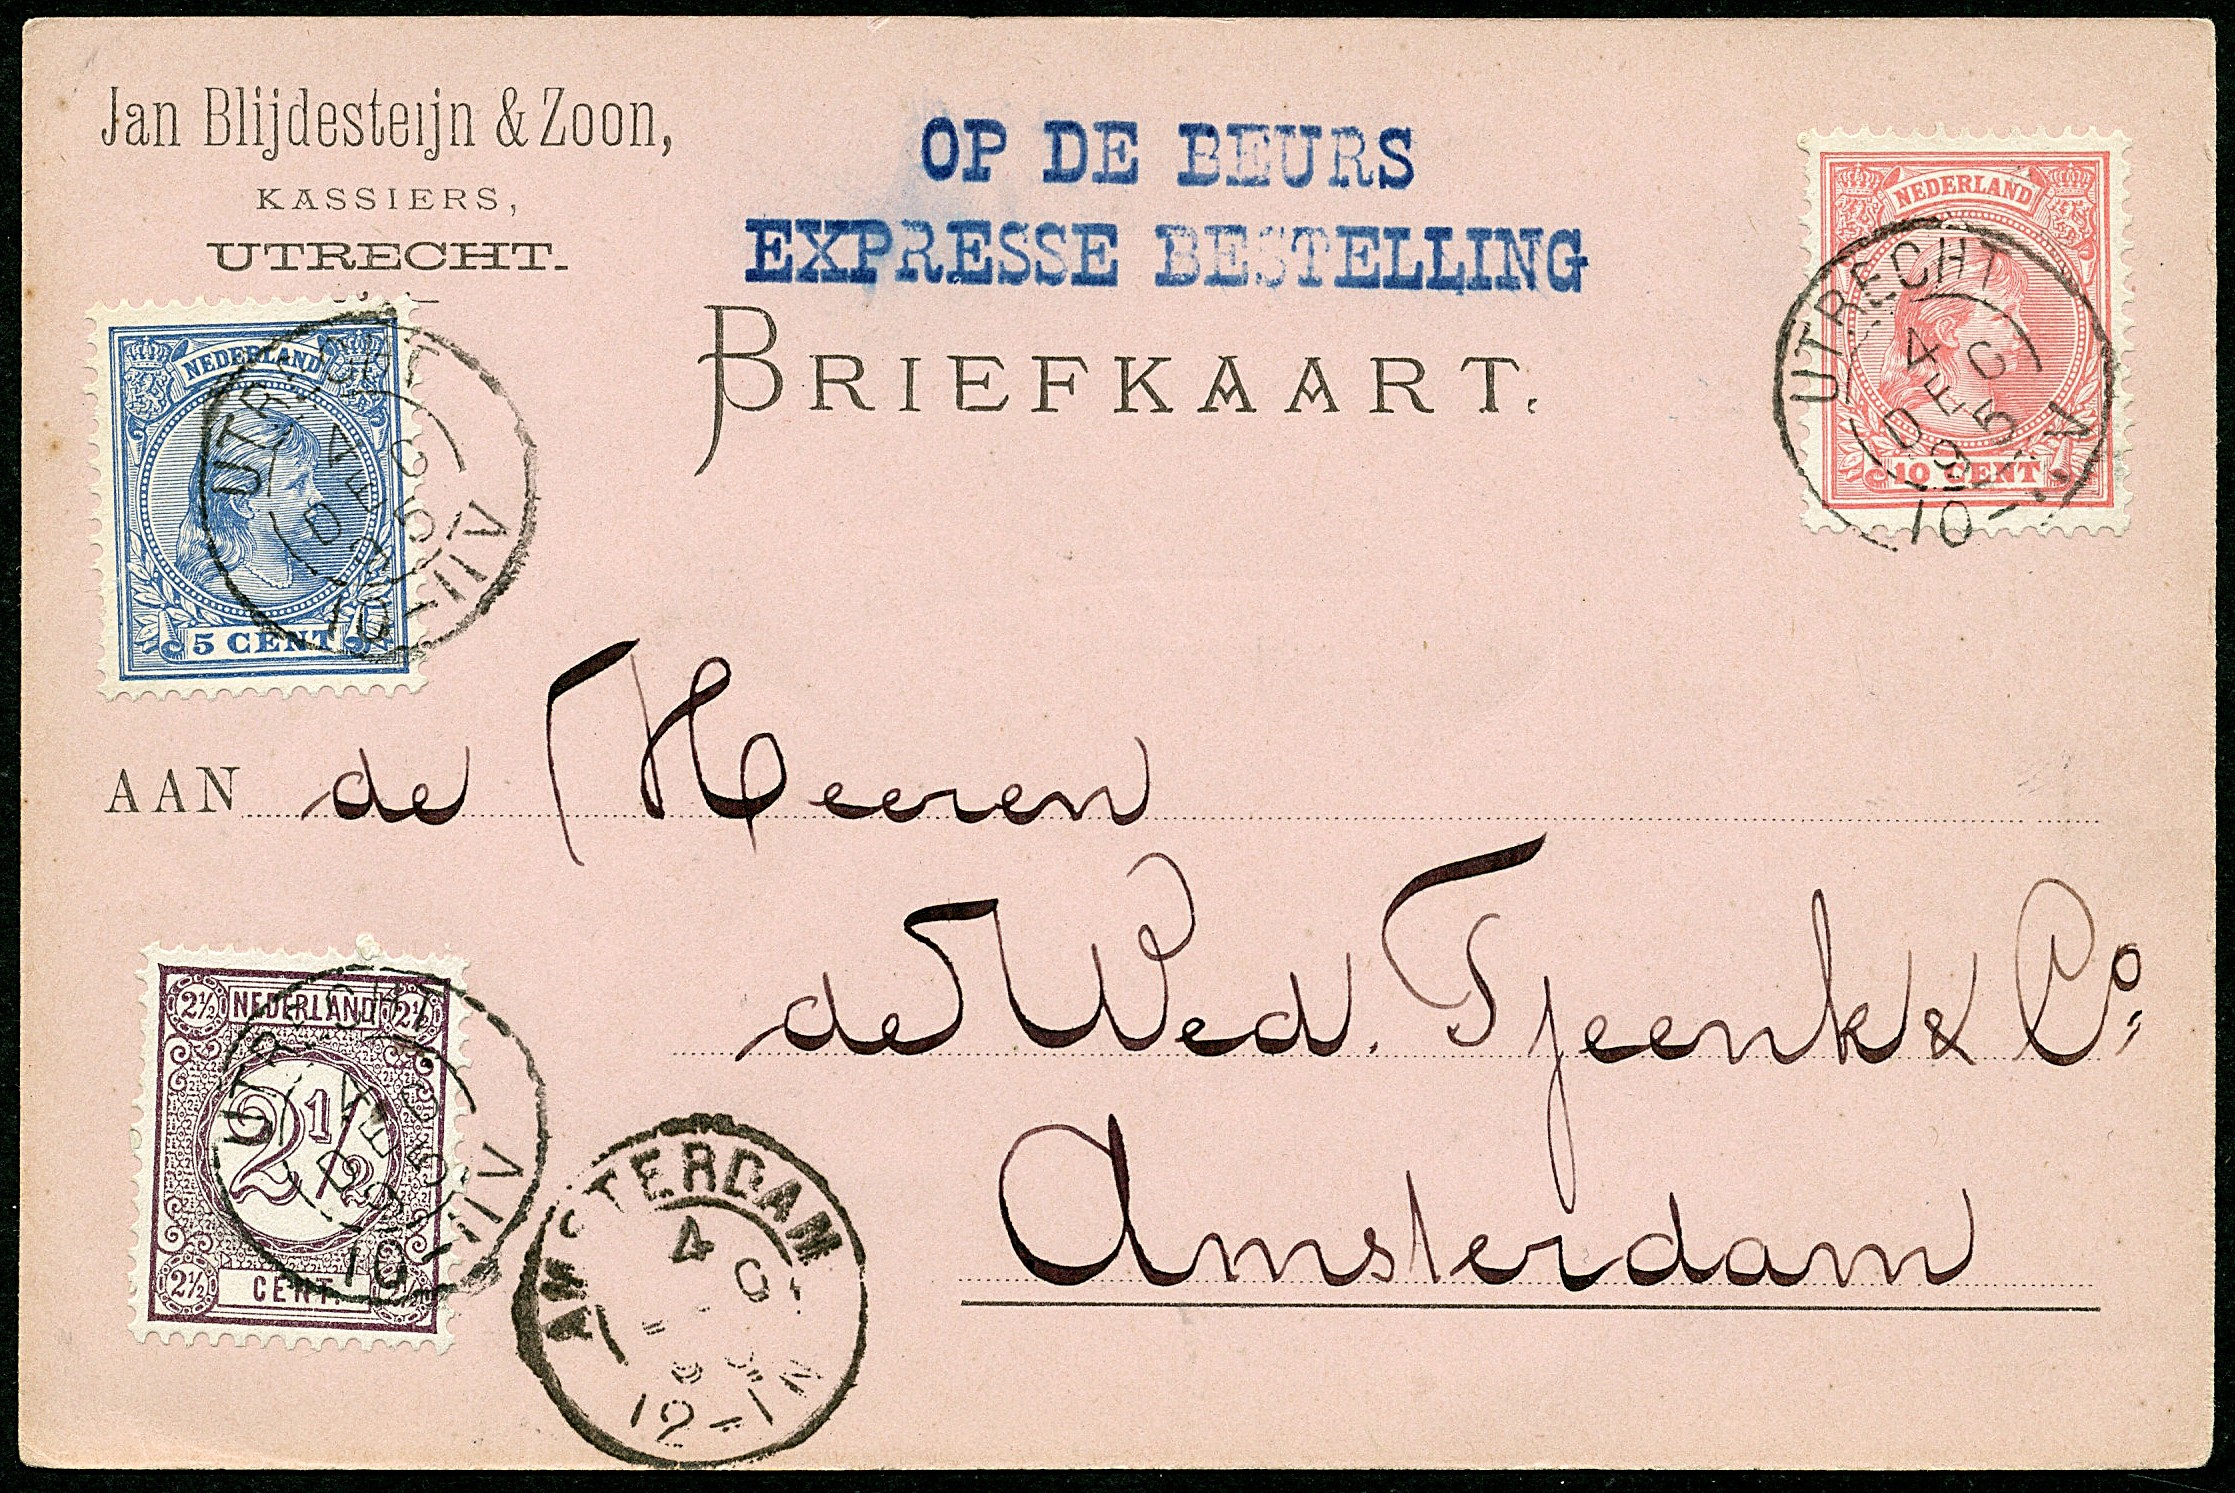 Jan Blijdesteijn & Zoon,
KASSIERS,
UTRECHT.
OP DE BEURS
EXPRESSE BESTELLING
BRIEFKAART.
NEDERLAND
10 CENT
UTRECHT
4 DEC
95
10-11V
NEDERLAND
5 CENT
UTRECHT
4 DEC
95
10-11V
AAN de Heeren
de Wed. Tjeenk & Co.
Amsterdam
2½ NEDERLAND 2½
2½
2½ CENT. 2½
UTRECHT
4 DEC
95
10-11V
AMSTERDAM
4
12-1N